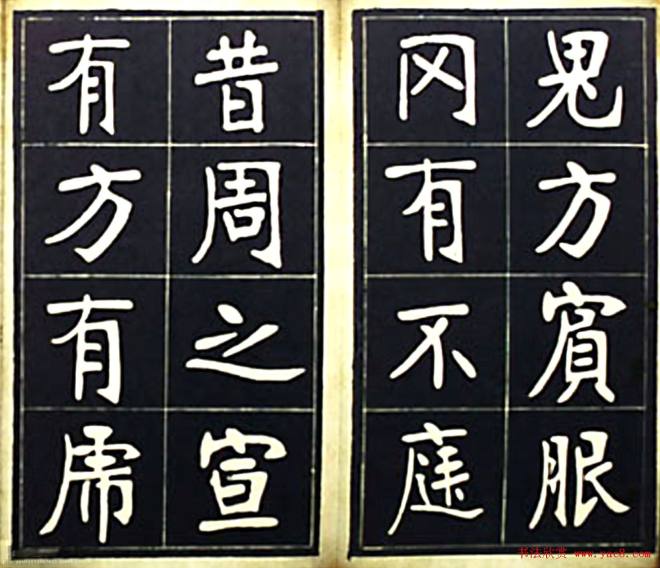 鬼方賓服
罔有不庭
昔周之宣
有方有虎
书法欣赏 www.yac8.com